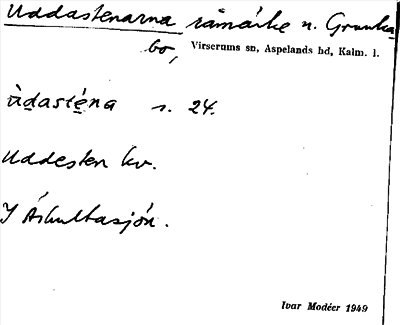 Uddastenarna råmärke n. Grunka
bo, Virserums sn, Aspelands hd, Kalm. l.
ùdasténa s. 24.
Uddesten kv.
I Áskultasjón.
Ivar Modéer 1949